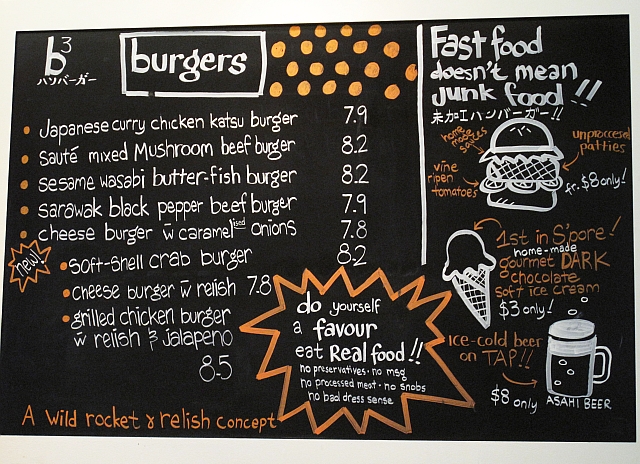 b³
ハンバーガー
burgers
Japanese curry chicken katsu burger 7.9
sauté mixed Mushroom beef burger 8.2
sesame wasabi butter-fish burger 8.2
sarawak black pepper beef burger 7.9
cheese burger w̄ caramelised onions 7.8
new!
soft-shell crab burger 8.2
cheese burger w̄ relish 7.8
grilled chicken burger
w̄ relish & jalapeno
8.5
A wild rocket & relish concept
do yourself
a favour
eat Real food!!
no preservatives · no msg
no processed meat · no snobs
no bad dress sense
Fast food
doesn't mean
junk food!!
未加工ハンバーガー!!
home-made
sauces
unproccesed
patties
vine
ripen
tomatoes
fr. $8 only!
1st in S'pore!
home-made
gourmet DARK
chocolate
soft ice cream
$3 only!
ice-cold beer
on TAP!!
$8 only
ASAHI BEER